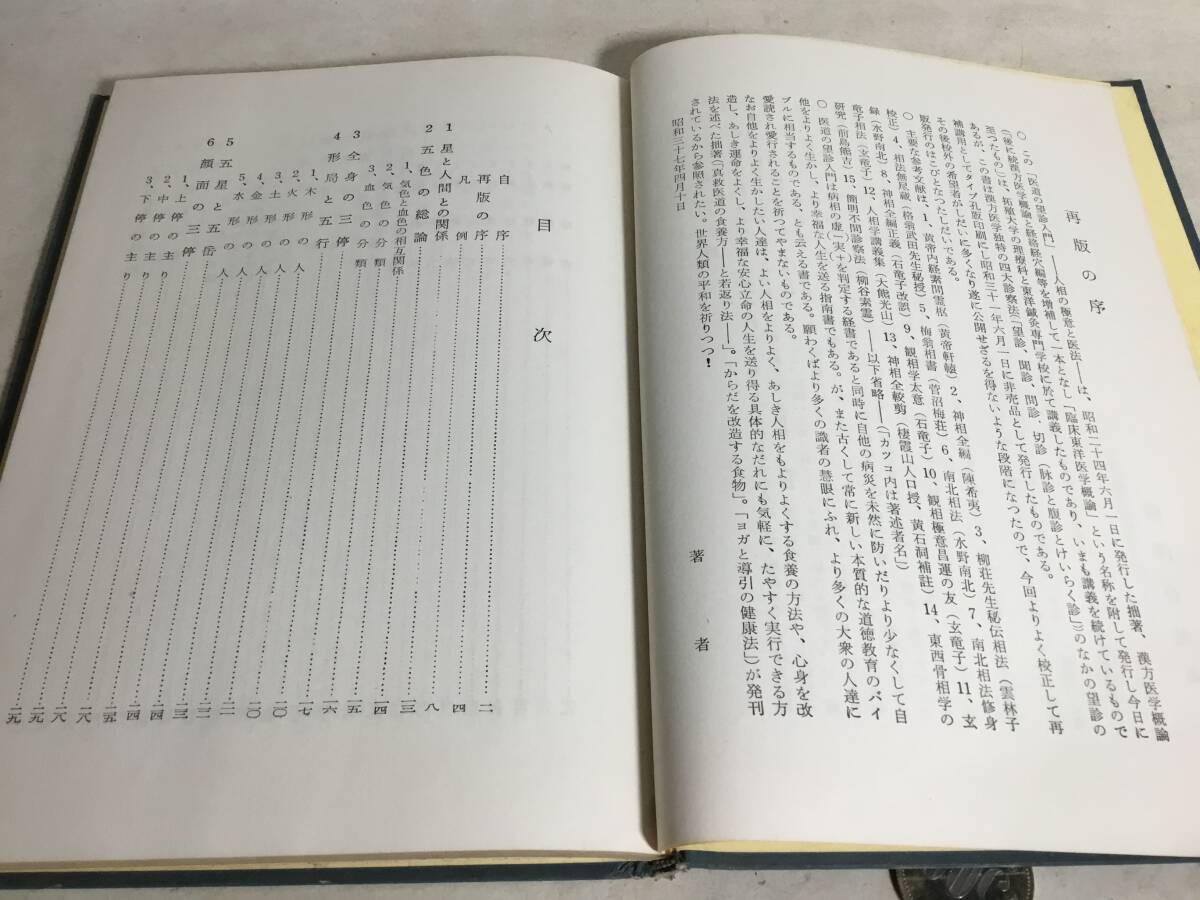 再版の序
○ この「医道の望診入門」――人相の極意と医法――は、昭和二十四年六月一日に発行した拙著、漢方医学概論
(「後に続漢方医学概論と経絡経穴編等を増補して一本となし「臨床東洋医学概論」という名称を附して発行し今日に
至つたもの」)は、拓殖大学の理療科と東洋鍼灸専門学校に於て講義したものであり、いまも講義を続けているもので
あるが、この書は漢方医学独特の四大診察法(望診、聞診、問診、切診(脉診と腹診とけいらく診))のなかの望診の
補講用としてタイプ孔版印刷にし昭和三十一年六月一日に非売品として発行したものである。
その後校外の希望者がしだいに多くなり遂に公開せざるを得ないような段階になつたので、今回よりよく校正して再
版発行のはこびとなつたしだいである。
○ 主要な参考文献は、1、黄帝内経素問霊枢(黄帝軒轅)2、神相全編(陳希夷)3、柳荘先生秘伝相法(雲林子
校正)4、相法無尽蔵(格翁武田先生秘授)5、梅翁相書(菅沼梅荘)6、南北相法(水野南北)7、南北相法修身
録(水野南北)8、神相全編正義(石竜子改誤)9、観相学大意(石竜子)10、観相極意昌運の友(玄竜子)11、玄
竜子相法(玄竜子)12、人相学講義集(大熊光山)13、神相全較剪(棲霞山人口授、黄石洞補註)14、東西骨相学の
研究(前島熊吉)15、簡明不問診察法(柳谷素霊)――以下省略――(「カッコ内は著述者名」)
○ 医道の望診入門は病相の虚|実+を判定する経書であると同時に自他の病災を未然に防いだりより少なくして自
他をよりよく生かし、より幸福な人生を送る指南書でもある。が、また古くして常に新しい本質的な道徳教育のバイ
ブルに相当するものである、とも云える書である。願わくばより多くの識者の慧眼にふれ、より多くの大衆の人達に
愛読され愛行されることを祈つてやまないものである。
なお自他をよりよく生かしたい人達は、よい人相をよりよく、あしき人相をもよりよくする食養の方法や、心身を改
造し、あしき運命をよくし、より幸福な安心立命の人生を送り得る具体的なだれにも気軽に、たやすく実行できる方
法を述べた拙著(「真救医道の食養方――と若返り法――」。「からだを改造する食物」。「ヨガと導引の健康法」)が発刊
されているから参照されたい。世界人類の平和を祈りつつ!
昭和三十七年四月十日
著者
目次
自序……二
再版の序……四
凡例……八
1 星と人間との関係……一三
2 五色の総論……一四
1、気色と血色の相互関係……一四
2、気色の分類……一五
3、血色の分類……一六
3 全身の三停……一七
4 形局と五行……二〇
1、木形の人……二〇
2、火形の人……二一
3、土形の人……二二
4、金形の人……二三
5、水形の人……二四
5 五星と五岳……二四
6 顔面の三停……二五
1、上停の主り……二八
2、中停の主り……二八
3、下停の主り……二九